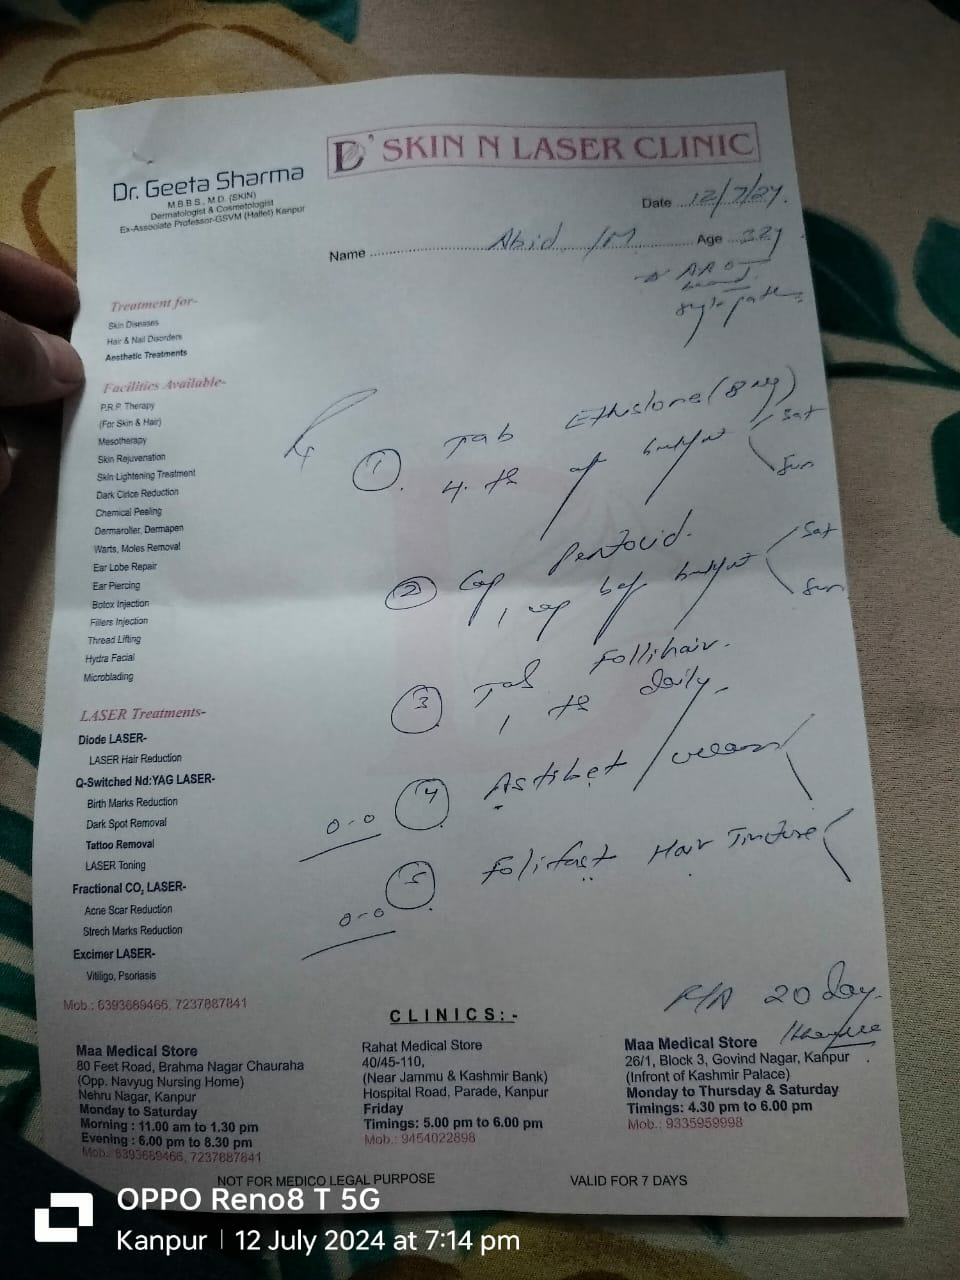 D' SKIN N LASER CLINIC
Dr. Geeta Sharma
M.B.B.S., M.D. (SKIN)
Dermatologist & Cosmetologist
Ex-Associate Professor-GSVM (Hallet) Kanpur
Date 12/7/24.
Name Abid /M Age 32y
Treatment for-
Skin Diseases
Hair & Nail Disorders
Aesthetic Treatments
Facilities Available-
P.R.P. Therapy
(For Skin & Hair)
Mesotherapy
Skin Rejuvenation
Skin Lightening Treatment
Dark Cirlce Reduction
Chemical Peeling
Dermaroller, Dermapen
Warts, Moles Removal
Ear Lobe Repair
Ear Piercing
Botox Injection
Fillers Injection
Thread Lifting
Hydra Facial
Microblading
LASER Treatments-
Diode LASER-
LASER Hair Reduction
Q-Switched Nd:YAG LASER-
Birth Marks Reduction
Dark Spot Removal
Tattoo Removal
LASER Toning
Fractional CO2 LASER-
Acne Scar Reduction
Strech Marks Reduction
Excimer LASER-
Vitiligo, Psoriasis
Mob.: 6393689466, 7237887841
1. Tab (8 mg)
4. Sat
Sun
2 Cap
1 Sat
Sun
3 Tab Follihair.
1 daily
4 Astibet
0-0
5 Folifast Hair Tincture
0-0
20 day.
CLINICS:-
Maa Medical Store
80 Feet Road, Brahma Nagar Chauraha
(Opp. Navyug Nursing Home)
Nehru Nagar, Kanpur
Monday to Saturday
Morning : 11.00 am to 1.30 pm
Evening : 6.00 pm to 8.30 pm
Mob.: 6393689466, 7237887841
Rahat Medical Store
40/45-110,
(Near Jammu & Kashmir Bank)
Hospital Road, Parade, Kanpur
Friday
Timings: 5.00 pm to 6.00 pm
Mob.: 9454022898
Maa Medical Store
26/1, Block 3, Govind Nagar, Kanpur
(Infront of Kashmir Palace)
Monday to Thursday & Saturday
Timings: 4.30 pm to 6.00 pm
Mob.: 9335959998
NOT FOR MEDICO LEGAL PURPOSE VALID FOR 7 DAYS
OPPO Reno8 T 5G
Kanpur | 12 July 2024 at 7:14 pm